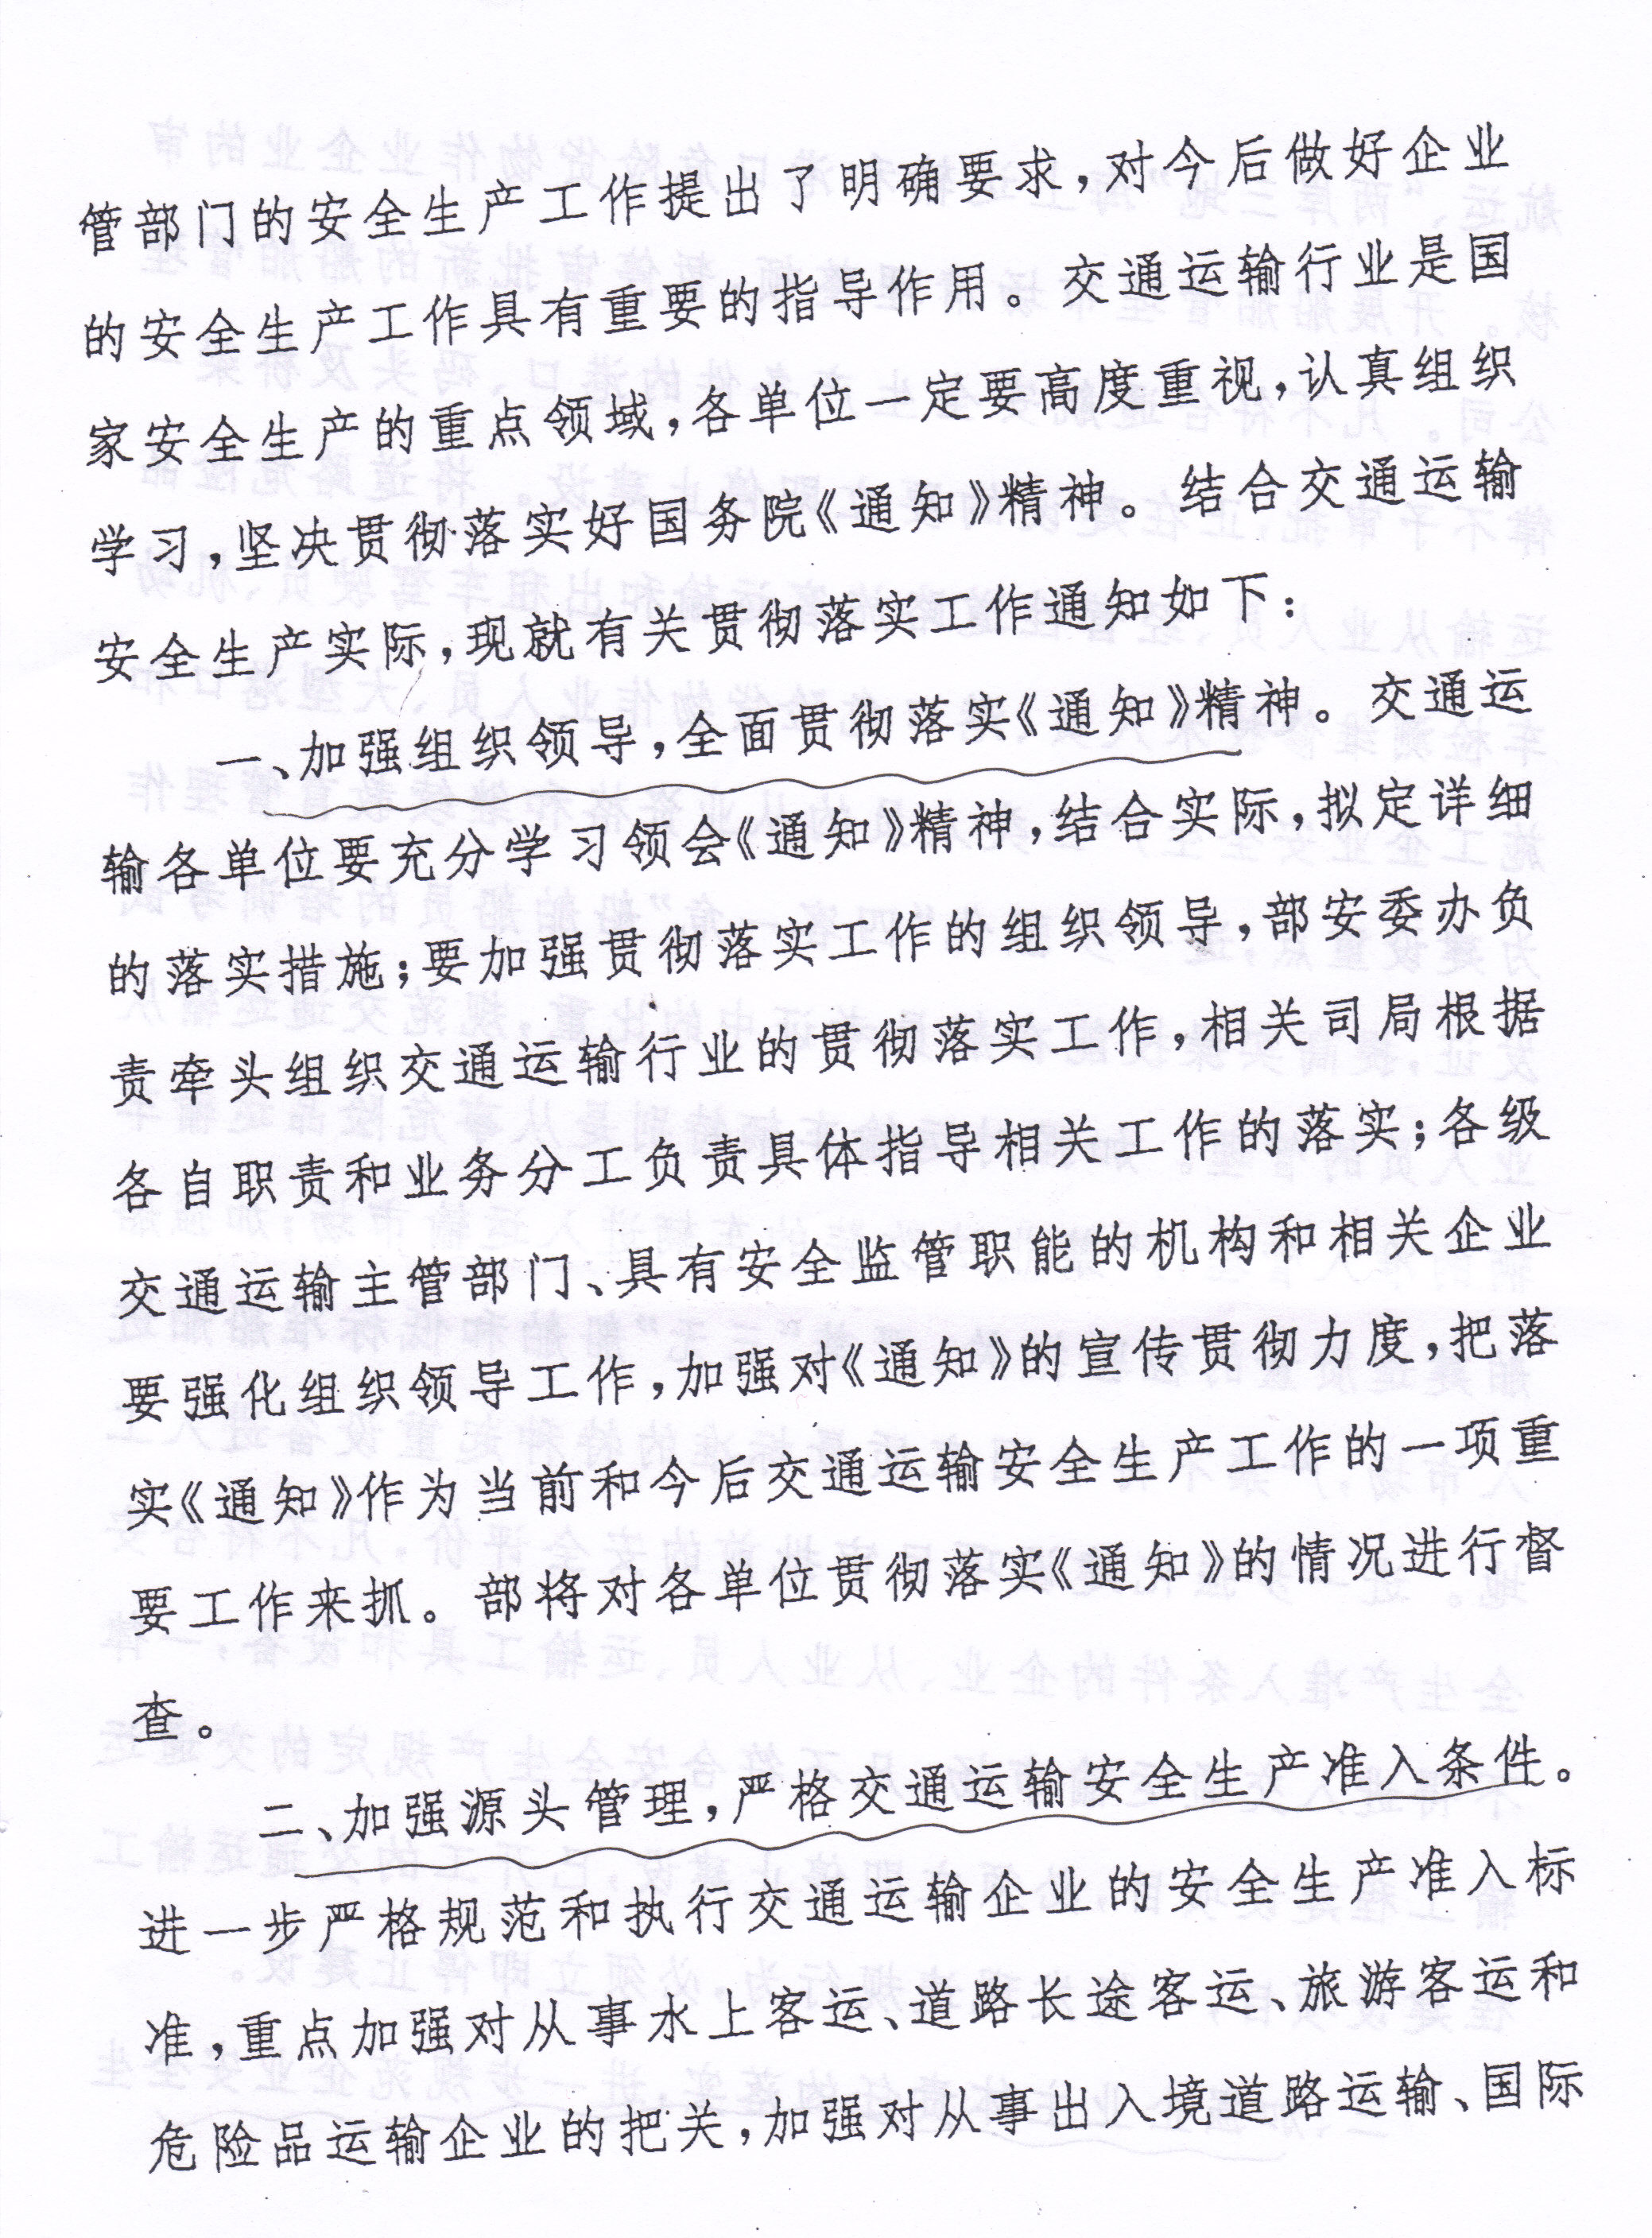 管部门的安全生产工作提出了明确要求，对今后做好企业
的安全生产工作具有重要的指导作用。交通运输行业是国
家安全生产的重点领域，各单位一定要高度重视，认真组织
学习，坚决贯彻落实好国务院《通知》精神。结合交通运输
安全生产实际，现就有关贯彻落实工作通知如下：
一、加强组织领导，全面贯彻落实《通知》精神。交通运
输各单位要充分学习领会《通知》精神，结合实际，拟定详细
的落实措施；要加强贯彻落实工作的组织领导，部安委办负
责牵头组织交通运输行业的贯彻落实工作，相关司局根据
各自职责和业务分工负责具体指导相关工作的落实；各级
交通运输主管部门、具有安全监管职能的机构和相关企业
要强化组织领导工作，加强对《通知》的宣传贯彻力度，把落
实《通知》作为当前和今后交通运输安全生产工作的一项重
要工作来抓。部将对各单位贯彻落实《通知》的情况进行督
查。
二、加强源头管理，严格交通运输安全生产准入条件。
进一步严格规范和执行交通运输企业的安全生产准入标
准，重点加强对从事水上客运、道路长途客运、旅游客运和
危险品运输企业的把关，加强对从事出入境道路运输、国际